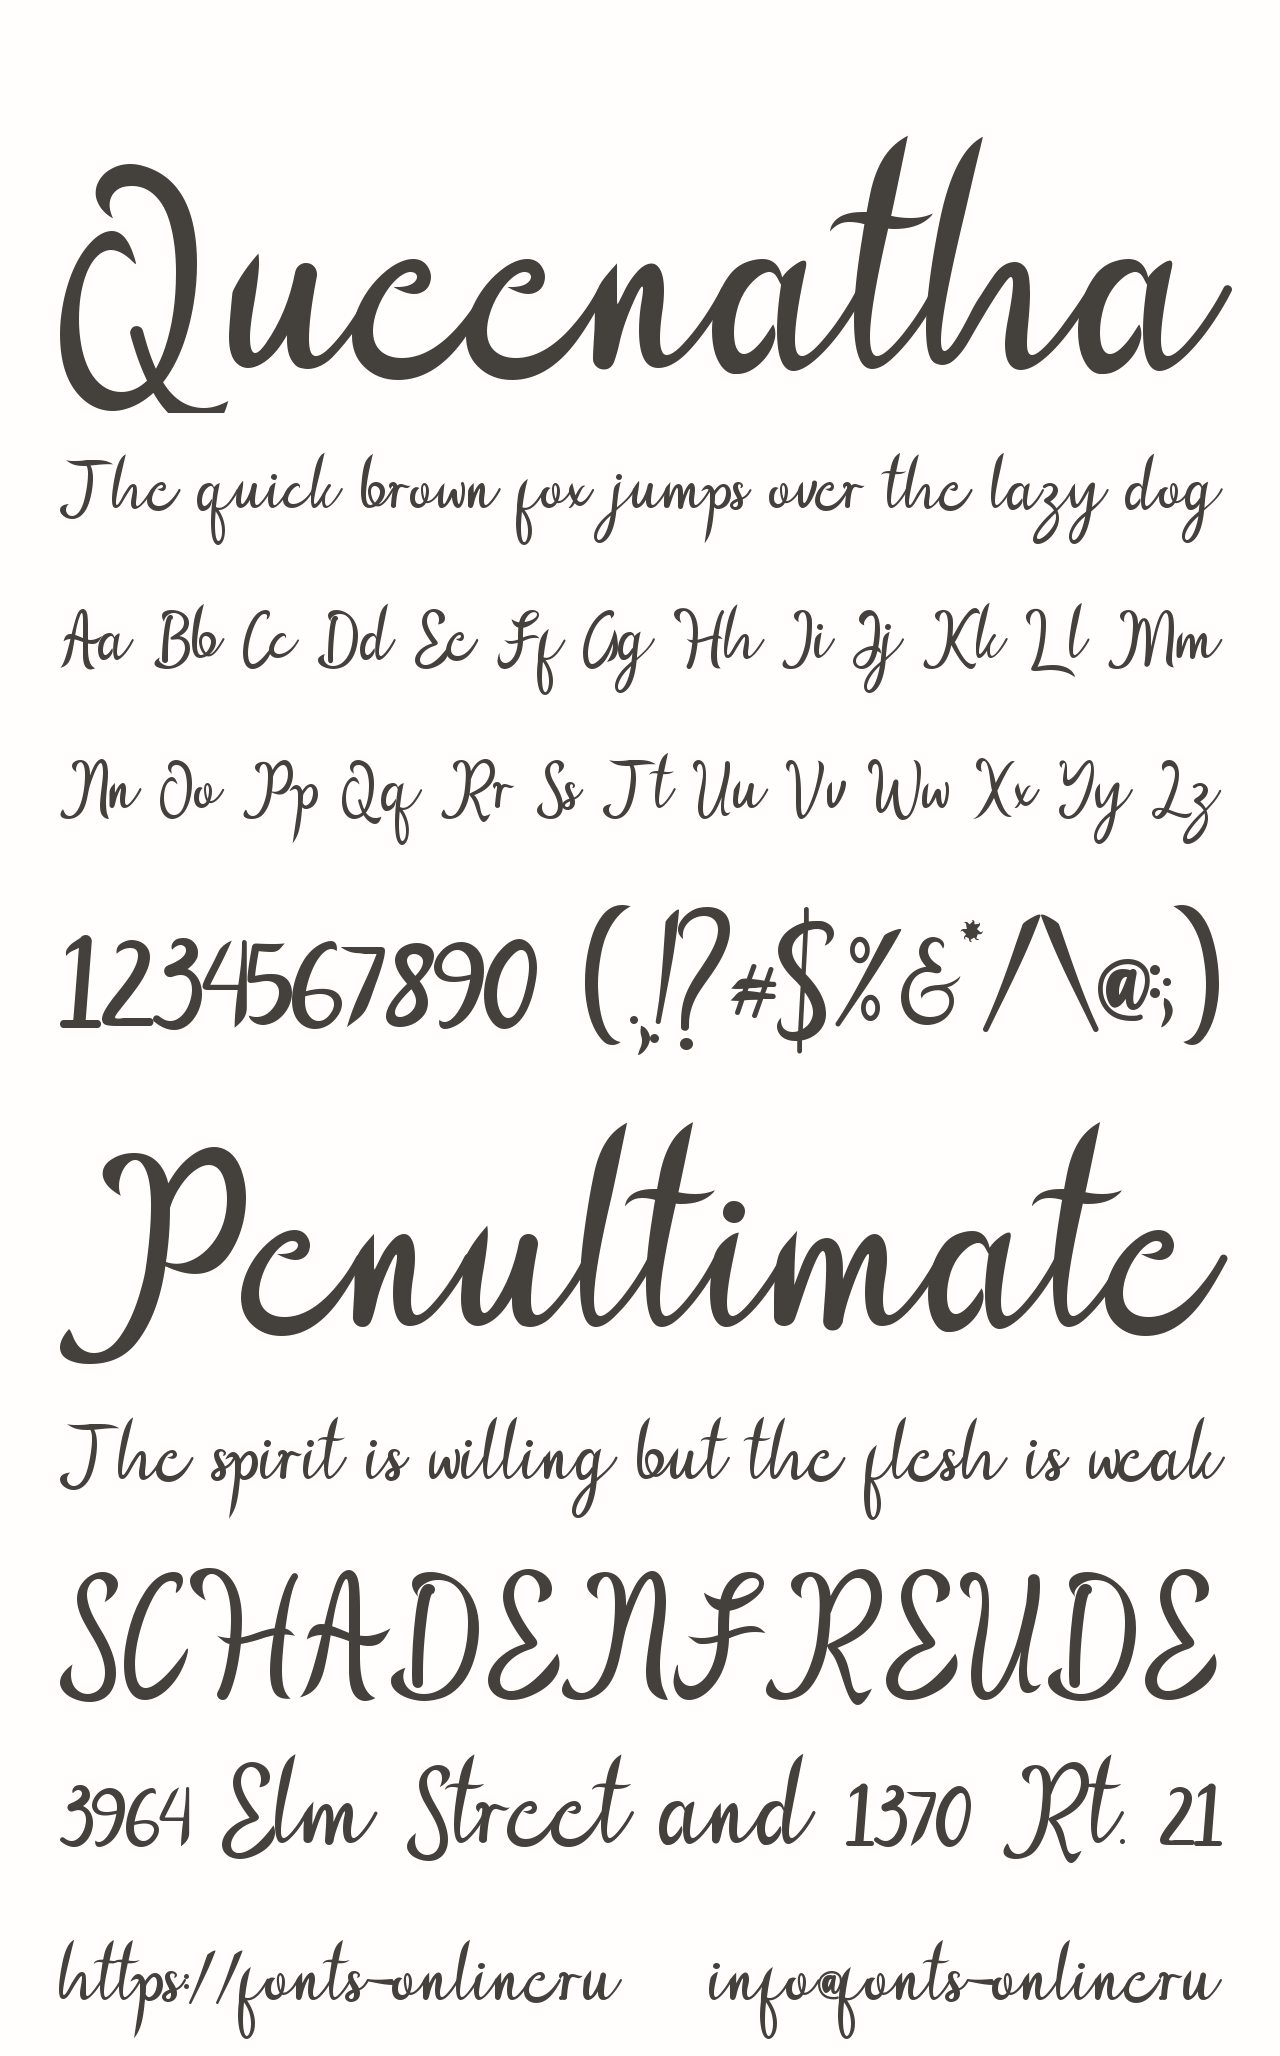 Queenatha
The quick brown fox jumps over the lazy dog
Aa Bb Cc Dd Ee Ff Gg Hh Ii Jj Kk Ll Mm
Nn Oo Pp Qq Rr Ss Tt Uu Vv Ww Xx Yy Zz
1234567890 (.,!?#$%&*/\@:;)
Penultimate
The spirit is willing but the flesh is weak
SCHADENFREUDE
3964 Elm Street and 1370 Rt. 21
https://fonts-onlineru info@fonts-onlineru